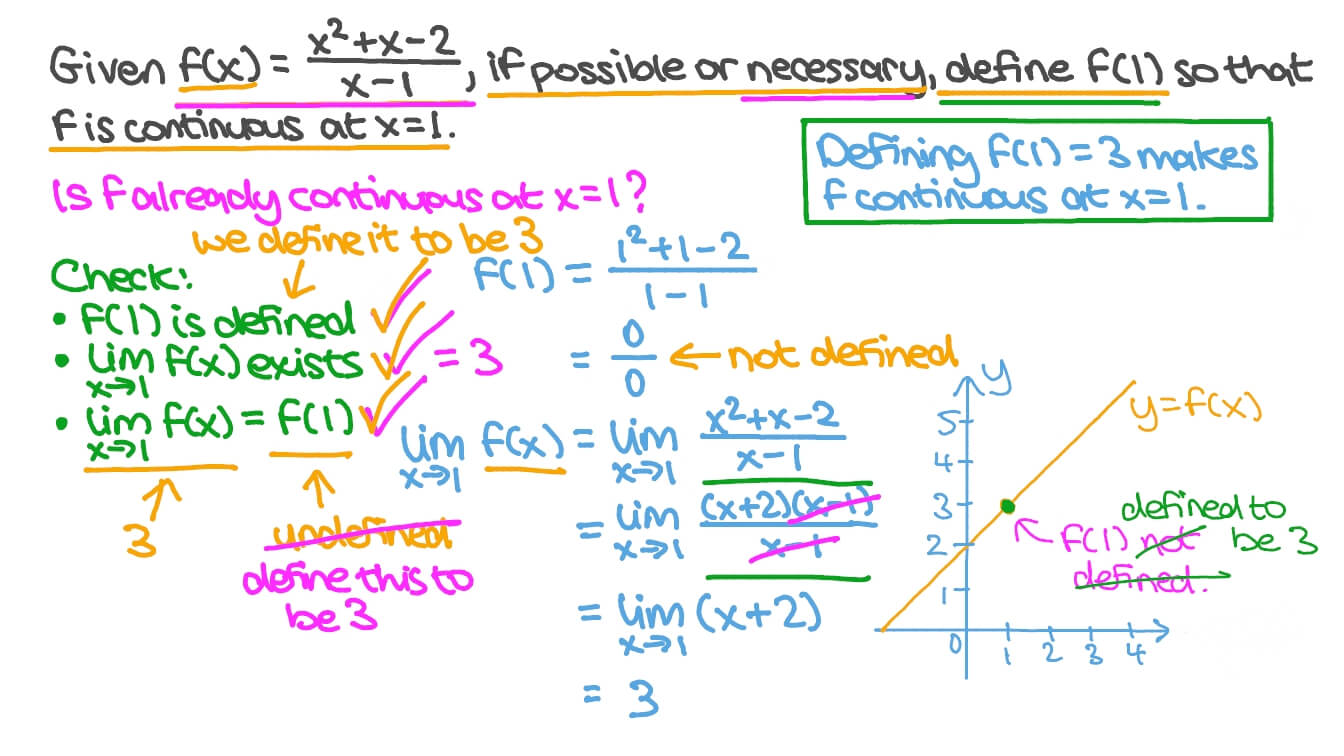 Given f(x) = (x²+x-2)/(x-1), if possible or necessary, define f(1) so that
f is continuous at x=1.
Defining f(1) = 3 makes
f continuous at x=1.
Is f already continuous at x=1?
we define it to be 3
Check:
• f(1) is defined
• lim x→1 f(x) exists = 3
• lim x→1 f(x) = f(1)
3
undefined
define this to
be 3
f(1) = (1²+1-2)/(1-1)
= 0/0 ← not defined
lim x→1 f(x) = lim x→1 (x²+x-2)/(x-1)
= lim x→1 (x+2)(x-1)/(x-1)
= lim x→1 (x+2)
= 3
y
y=f(x)
5
4
3
2
1
0
1 2 3 4
defined to
f(1) not be 3
defined.